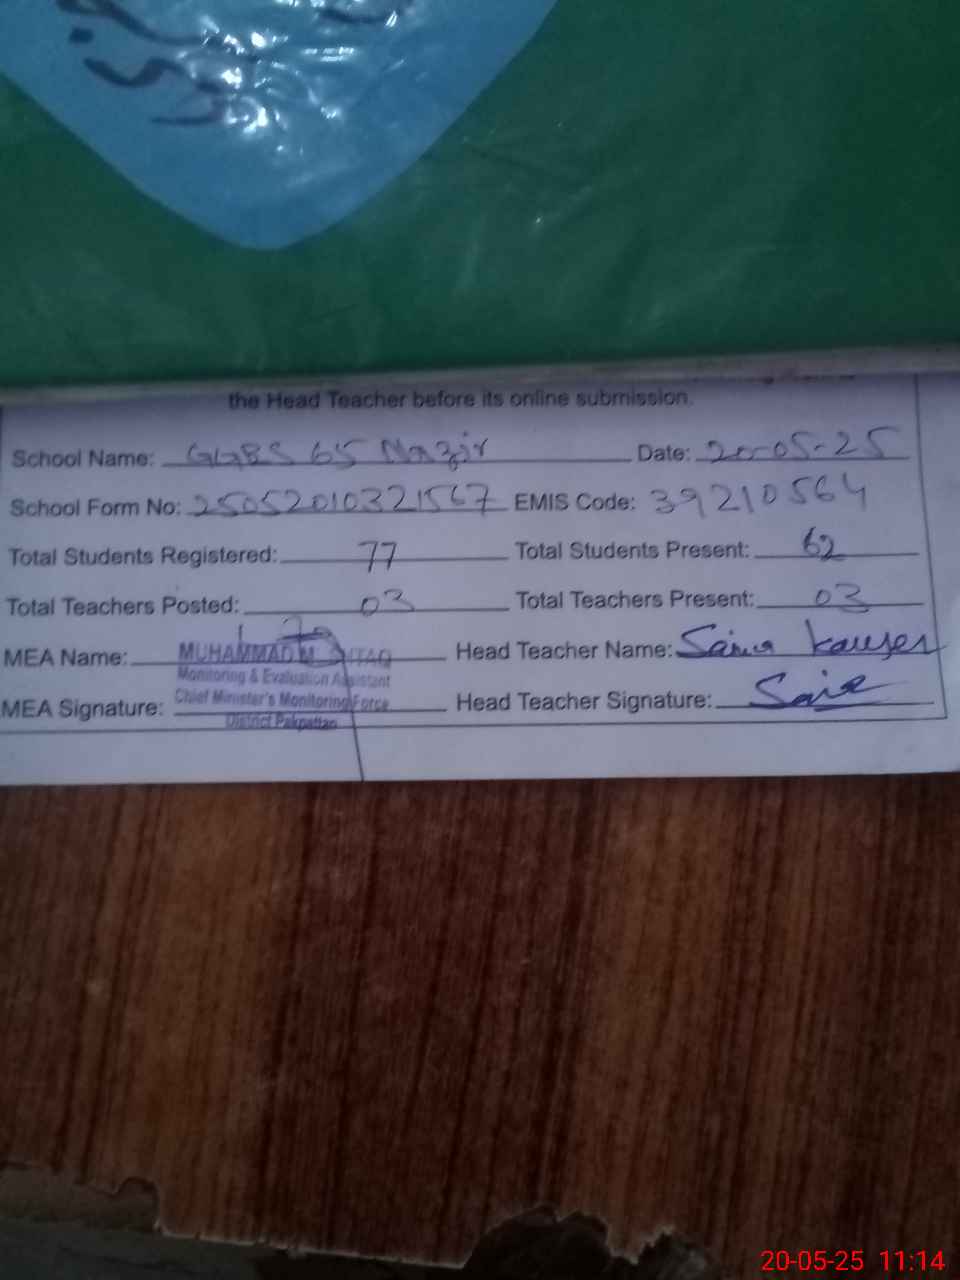 the Head Teacher before its online submission.
School Name: GGBS 65 Nazir Date: 20-05-25
School Form No: 25052010321567 EMIS Code: 39210564
Total Students Registered: 77 Total Students Present: 62
Total Teachers Posted: 03 Total Teachers Present: 03
MEA Name: MUHAMMAD Head Teacher Name: Saima Kauser
Monitoring & Evaluation Assistant
Chief Minister's Monitoring Force
MEA Signature: Head Teacher Signature:
District Pakpattan
20-05-25 11:14